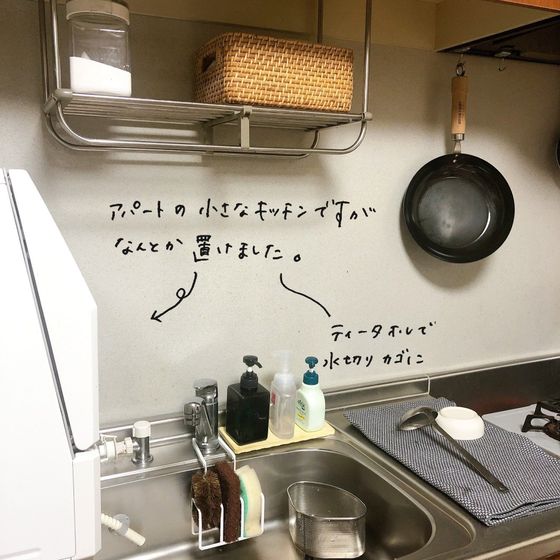 アパートの小さなキッチンですが
なんとか置けました。
ティータオルで
水切りカゴに